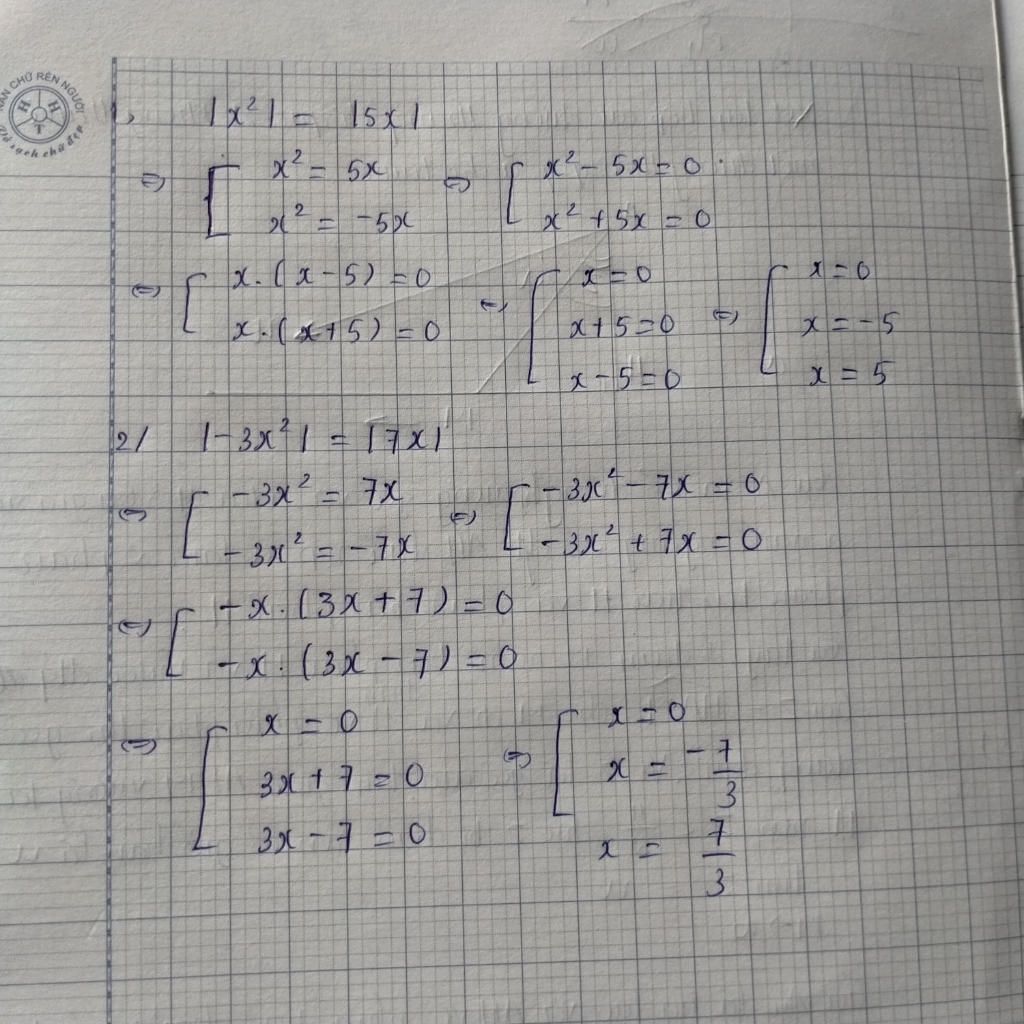 RÈN CHỮ RÈN NGƯỜI
H H T
Vở sạch chữ đẹp
1, |x²| = |5x|
⇔ [ x² = 5x ⇔ [ x² - 5x = 0
x² = -5x x² + 5x = 0
⇔ [ x.(x - 5) = 0 ⇔ [ x = 0 ⇔ [ x = 0
x.(x + 5) = 0 x + 5 = 0 x = -5
x - 5 = 0 x = 5
2/ |-3x²| = |7x|
⇔ [ -3x² = 7x ⇔ [ -3x² - 7x = 0
-3x² = -7x -3x² + 7x = 0
⇔ [ -x.(3x + 7) = 0
-x.(3x - 7) = 0
⇔ [ x = 0 ⇔ [ x = 0
3x + 7 = 0 x = -7/3
3x - 7 = 0 x = 7/3